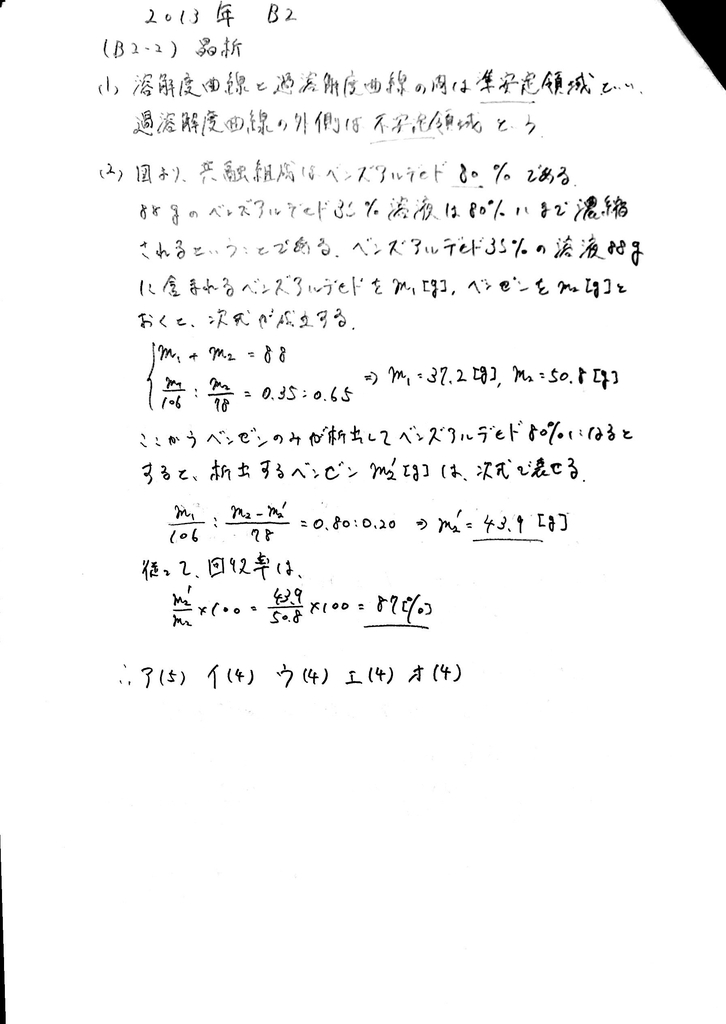 2013年 B2
(B2-2) 晶析
(1) 溶解度曲線と過溶解度曲線の間は準安定領域といい、
過溶解度曲線の外側は不安定領域という
(2) 図より、共融組成はベンズアルデヒド 80 %である.
88gのベンズアルデヒド35%溶液は80%にまで濃縮
されるということである. ベンズアルデヒド35%の溶液88g
に含まれるベンズアルデヒドをm₁[g], ベンゼンをm₂[g]と
おくと、次式が成立する.
m₁ + m₂ = 88
m₁/106 : m₂/78 = 0.35 : 0.65 ⇒ m₁ = 37.2 [g], m₂ = 50.8 [g]
ここからベンゼンのみが析出してベンズアルデヒド80%になると
すると、析出するベンゼン m₂' [g] は、次式で表せる.
m₁/106 : (m₂-m₂')/78 = 0.80 : 0.20 ⇒ m₂' = 43.9 [g]
従って、回収率は、
m₂'/m₂ × 100 = 43.9/50.8 × 100 = 87 [%]
∴ ア(5) イ(4) ウ(4) エ(4) オ(4)